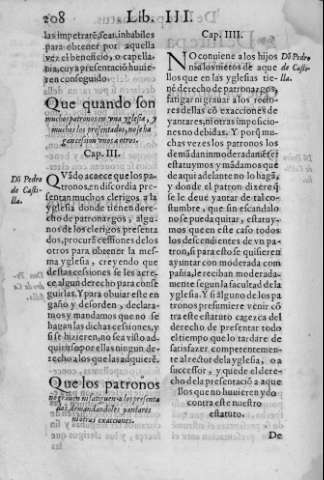 208 Lib. III.
las impetrarē, seā inhabiles
para obtener por aquella
vez el beneficio, o capella-
nia, cuya presentació huuie-
ren conseguido.
Que quando son
muchos patronos en vna yglesia, y
muchos los presentados, no se ha
vnos a otros.
Cap. III.
Dō Pedro
de Casti-
lla.
QVādo acaece que los pa-
tronos, en discordia pre-
sentan muchos clerigos a la
yglesia donde tienen dere-
cho de patronargos, algu-
nos de los clerigos presenta
dos, procurā cessiones de los
otros para obtener la mes-
ma yglesia, creyendo que
destas cessiones se les acre-
ce algun derecho para conse
guirlas. Y para obuiar este en
gaño y desorden, declara-
mos y mandamos que no se
hagan las dichas cessiones, y
si se hizieren, no sea visto ad-
quirirse por ellas ningun de-
recho a los que las adquierē.
Que los patronos
ni fatiguen a los presenta
dos demandandoles yantares
ni otras exacciones.
Cap. IIII.
Dō Pedro
de Casti-
lla.
NO conuiene a los hijos
ni a los nietos de aque
llos que en las yglesias tie-
nē derecho de patronargos,
fatigar ni grauar a los recto-
res dellas cō exacciones de
yantares, ni otras imposicio-
nes no debidas. Y porq̄ mu-
chas vezes los patronos los
demādan inmoderadamēte:
estatuymos y mādamos que
de aqui adelante no lo hagā,
y donde el patron dixere q̄
se le deue yantar de tal co-
stumbre, que sin escandalo
no se pueda quitar, estatuy-
mos que en este caso todos
los descendientes de vn pa-
tron, si para esto se quisieren
ayuntar con moderada com
pañia, le reciban moderada-
mente segun la facultad de la
yglesia. Y si alguno de los pa
tronos presumiere venir cō
tra este estatuto carezca del
derecho de presentar todo
el tiempo que lo tardare de
satisfazer competentemen-
te al rector de la yglesia, o a
successor, y quede el dere-
cho de la presentació a aque
llos que no huuieren ydo
contra este nuestro
estatuto.
De